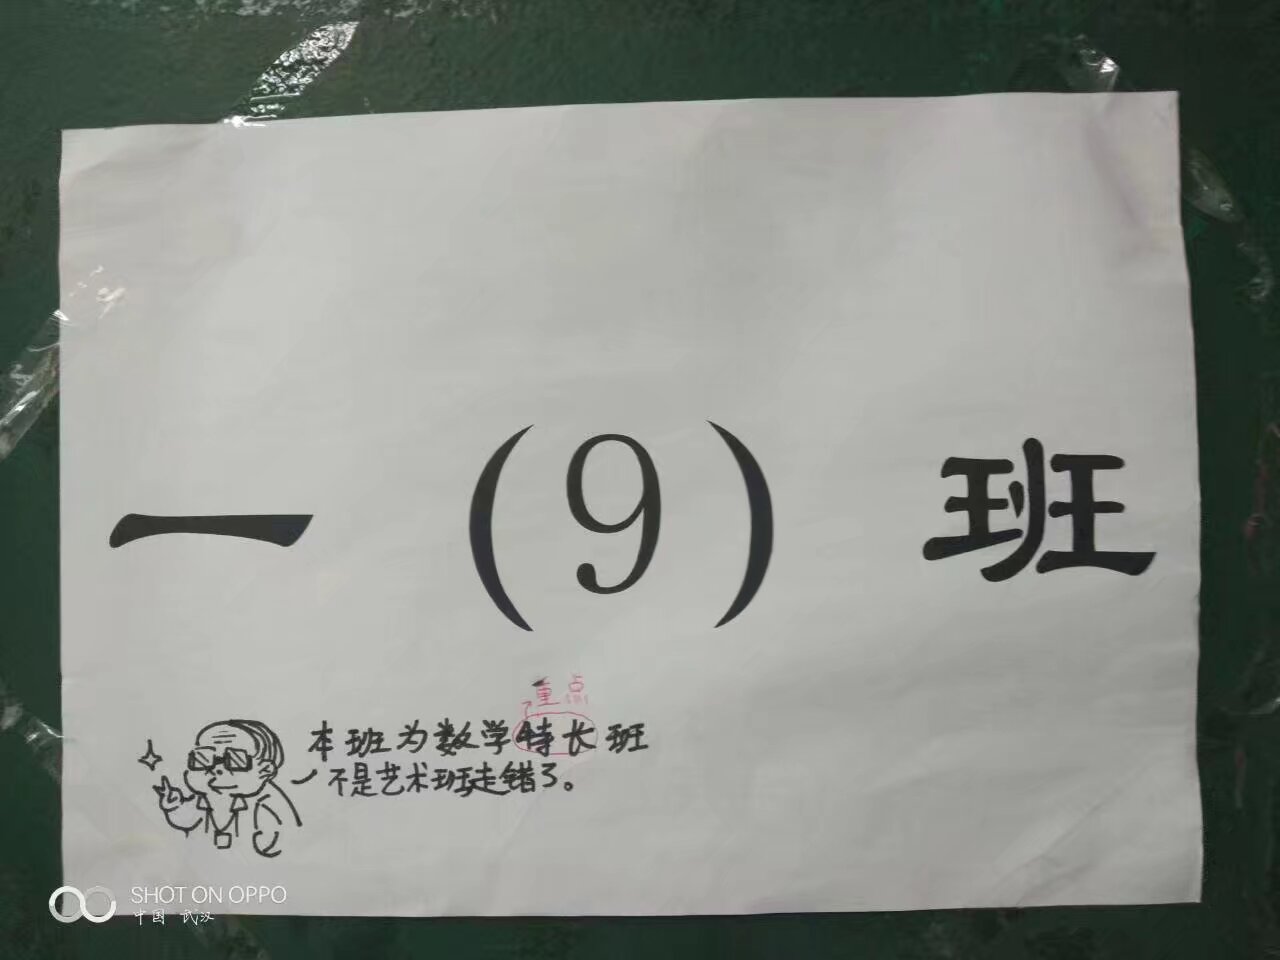 一（9）班
重点
本班为数学特长班
不是艺术班走错了。
SHOT ON OPPO
中国 武汉